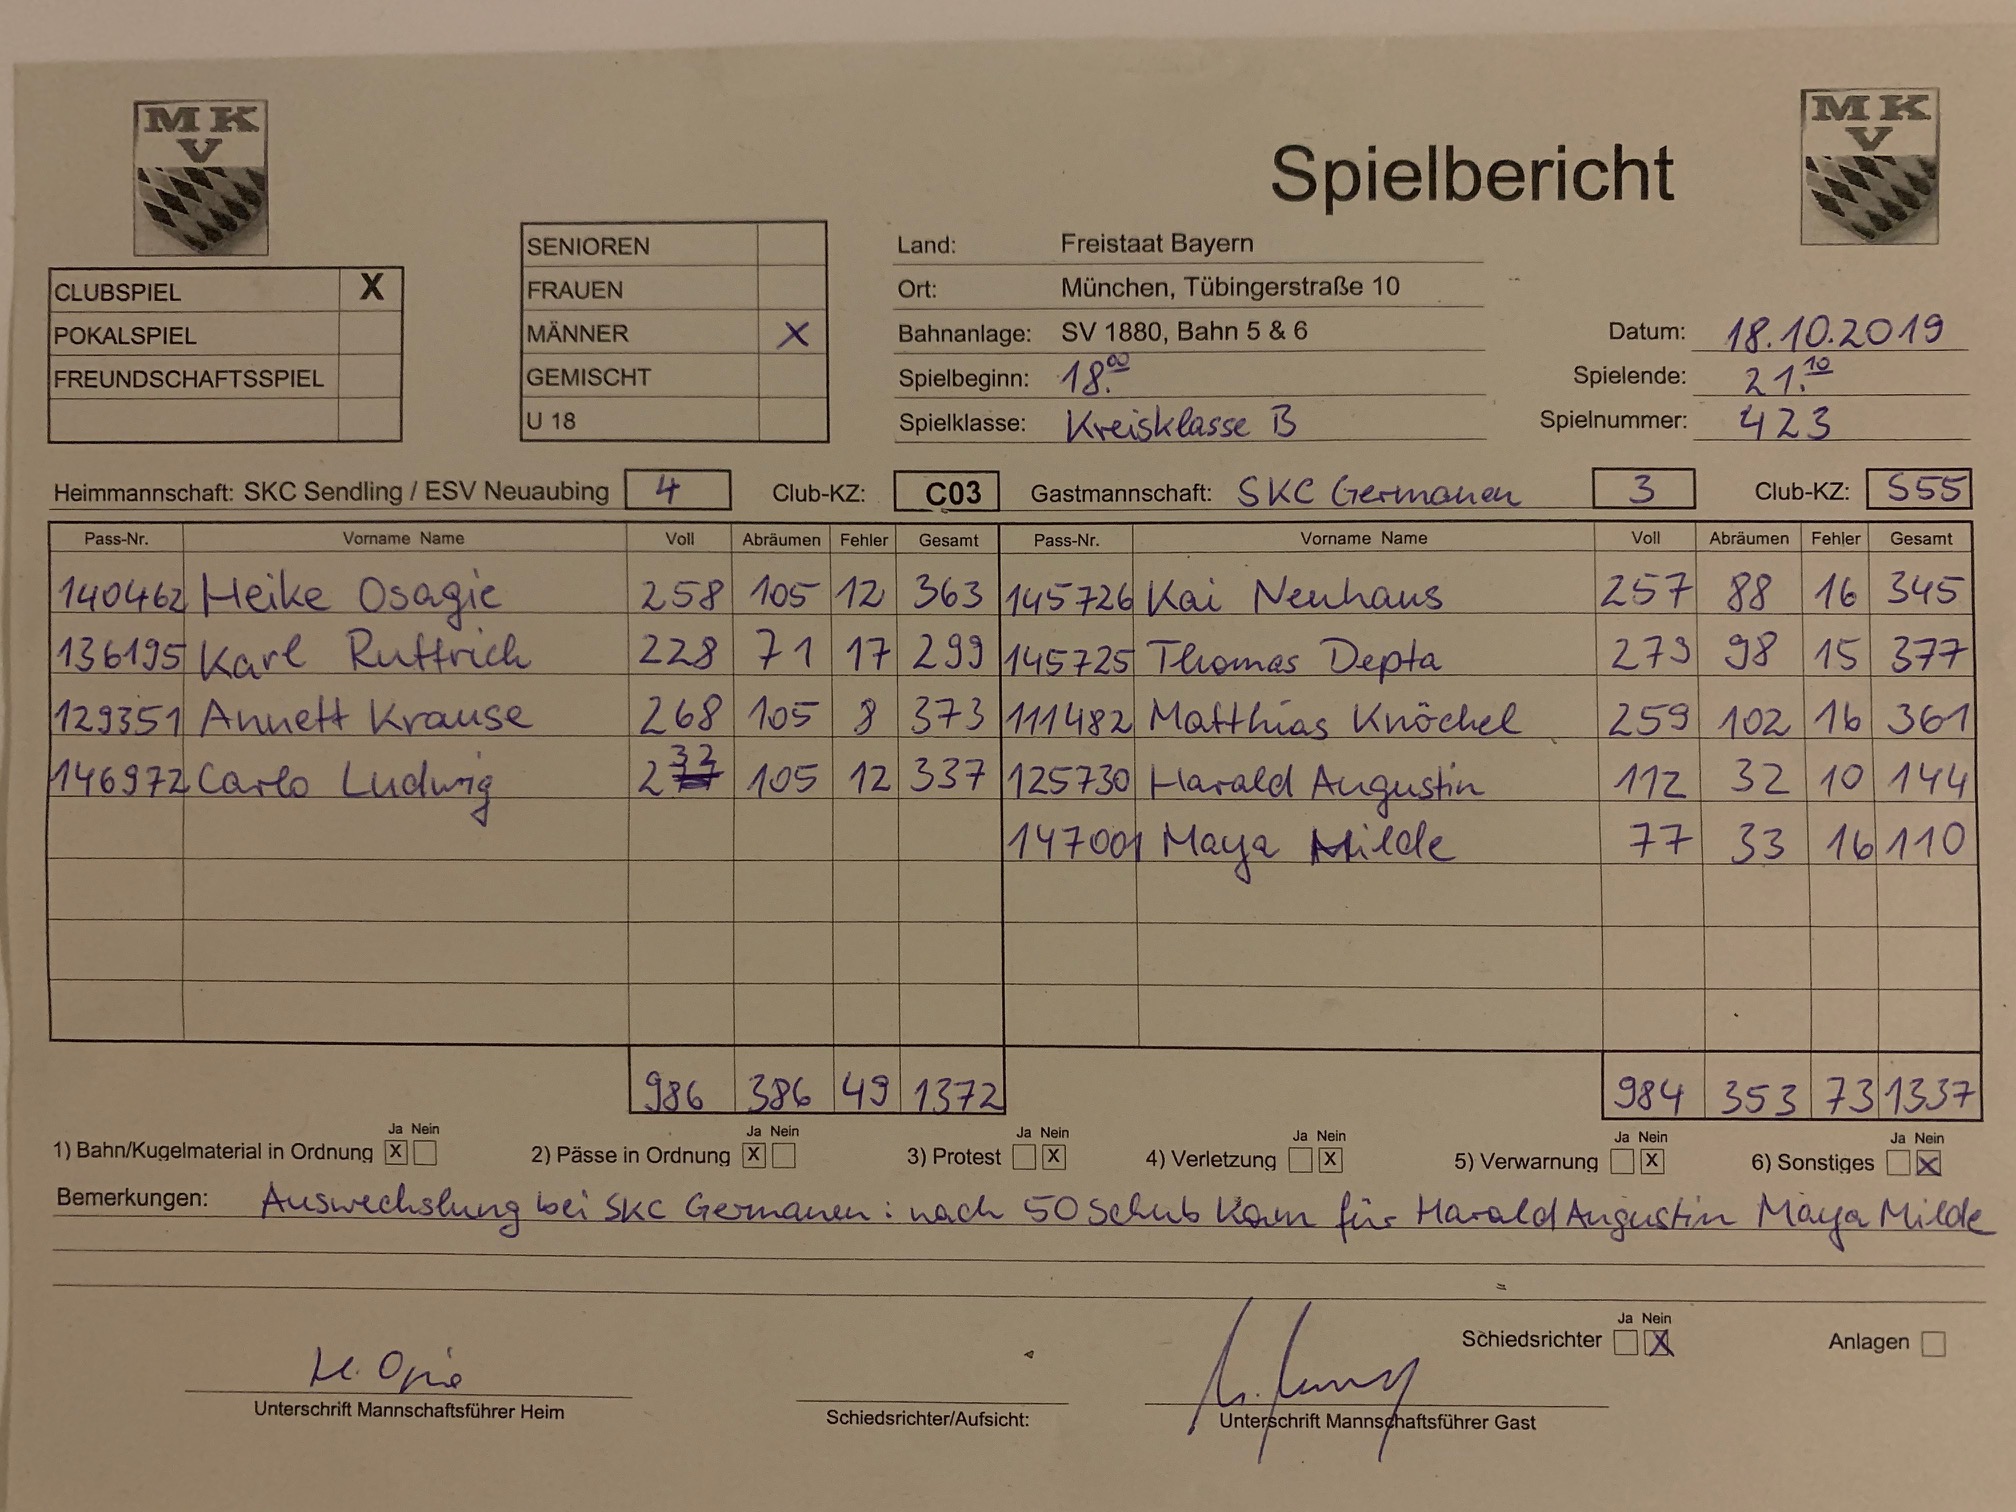 MK
V
MK
V
Spielbericht
CLUBSPIEL X
POKALSPIEL
FREUNDSCHAFTSSPIEL
SENIOREN
FRAUEN
MÄNNER X
GEMISCHT
U 18
Land: Freistaat Bayern
Ort: München, Tübingerstraße 10
Bahnanlage: SV 1880, Bahn 5 & 6
Spielbeginn: 18.00
Spielklasse: Kreisklasse B
Datum: 18.10.2019
Spielende: 21.10
Spielnummer: 423
Heimmannschaft: SKC Sendling / ESV Neuaubing 4 Club-KZ: C03 Gastmannschaft: SKC Germanen 3 Club-KZ: S55
Pass-Nr. Vorname Name Voll Abräumen Fehler Gesamt Pass-Nr. Vorname Name Voll Abräumen Fehler Gesamt
140462 Heike Osagie 258 105 12 363 145726 Kai Neuhaus 257 88 16 345
136195 Karl Ruttrich 228 71 17 299 145725 Thomas Depta 279 98 15 377
129351 Annett Krause 268 105 8 373 111482 Matthias Knöchel 259 102 16 361
146972 Carlo Ludwig 232 105 12 337 125730 Harald Augustin 112 32 10 144
147001 Maya Milde 77 33 16 110
986 386 49 1372 984 353 73 1337
Ja Nein Ja Nein Ja Nein Ja Nein Ja Nein Ja Nein
1) Bahn/Kugelmaterial in Ordnung X 2) Pässe in Ordnung X 3) Protest X 4) Verletzung X 5) Verwarnung X 6) Sonstiges X
Bemerkungen: Auswechslung bei SKC Germanen: nach 50 Schub kam für Harald Augustin Maya Milde
Ja Nein
Schiedsrichter X Anlagen
Unterschrift Mannschaftsführer Heim
Schiedsrichter/Aufsicht:
Unterschrift Mannschaftsführer Gast